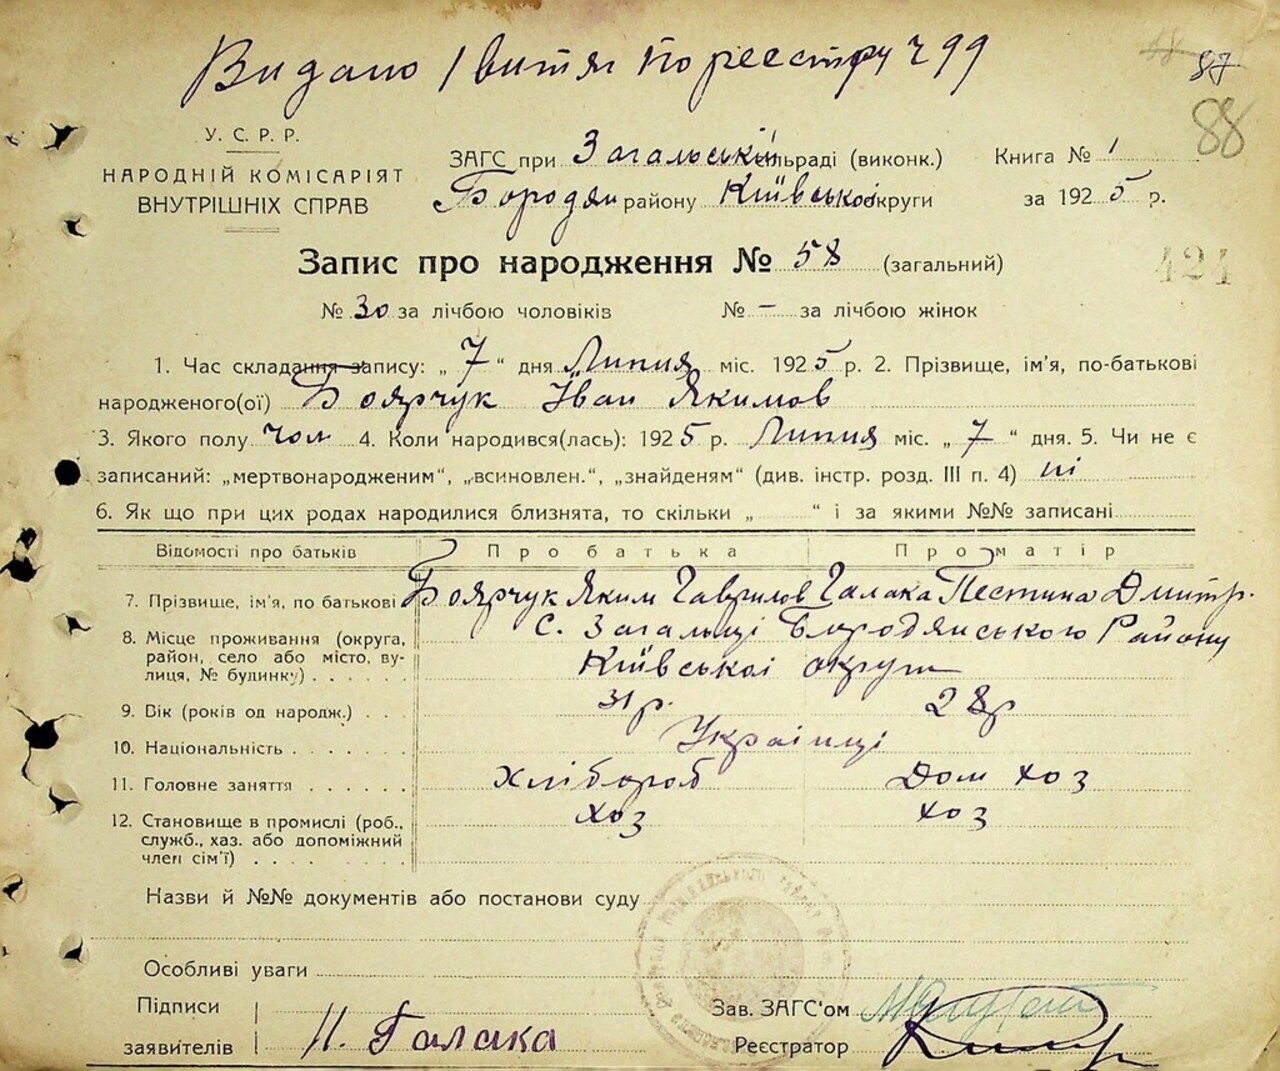 Видано 1 витяг по реєстру Ч 99
87
88
У. С. Р. Р.
НАРОДНІЙ КОМІСАРІЯТ
ВНУТРІШНІХ СПРАВ
ЗАГС при Загальській сільраді (виконк.) Книга № 1
Бородян району Київської округи за 1925 р.
Запис про народження № 58 (загальний)
421
№ 30 за лічбою чоловіків № — за лічбою жінок
1. Час складання запису: „ 7 “ дня Липня міс. 1925 р. 2. Прізвище, ім'я, по-батькові
народженого(ої) Боярчук Іван Якимов
3. Якого полу чол 4. Коли народився(лась): 1925 р. Липня міс. „ 7 “ дня. 5. Чи не є
записаний: „мертвонародженим“, „всиновлен.“, „знайденям“ (див. інстр. розд. III п. 4) ні
6. Як що при цих родах народилися близнята, то скільки „ “ і за якими №№ записані
Відомості про батьків Про батька Про матір
7. Прізвище, ім'я, по батькові Боярчук Яким Гаврилов Галака Пестина Дмитр.
8. Місце проживання (округа, с. Загальці Бородянського Району
район, село або місто, ву-
лиця, № будинку) Київської округи
9. Вік (років од народж.) 31 р. 28 р
10. Національність Українці
11. Головне заняття хлібороб Дом хоз
12. Становище в промислі (роб., хоз хоз
служб., хаз. або допоміжний
член сім'ї)
Назви й №№ документів або постанови суду
Особливі уваги
Підписи Зав. ЗАГС'ом
заявителів П. Галака Реєстратор